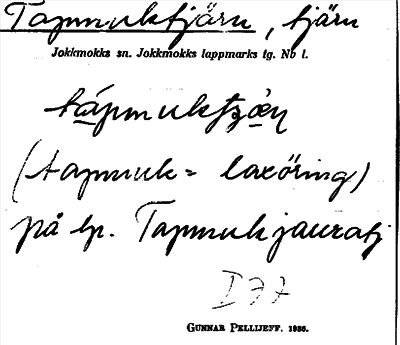 Tapmuktjärn, tjärn
Jokkmokks sn. Jokkmokks lappmarks tg. Nb l.
(tapmuk = laxöring)
på lp. Tapmukjauratj
I 77
GUNNAR PELLIJEFF. 1956.